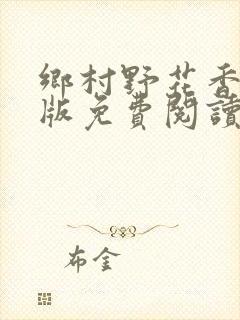 鄉村野花香
版免費閱讀
布金